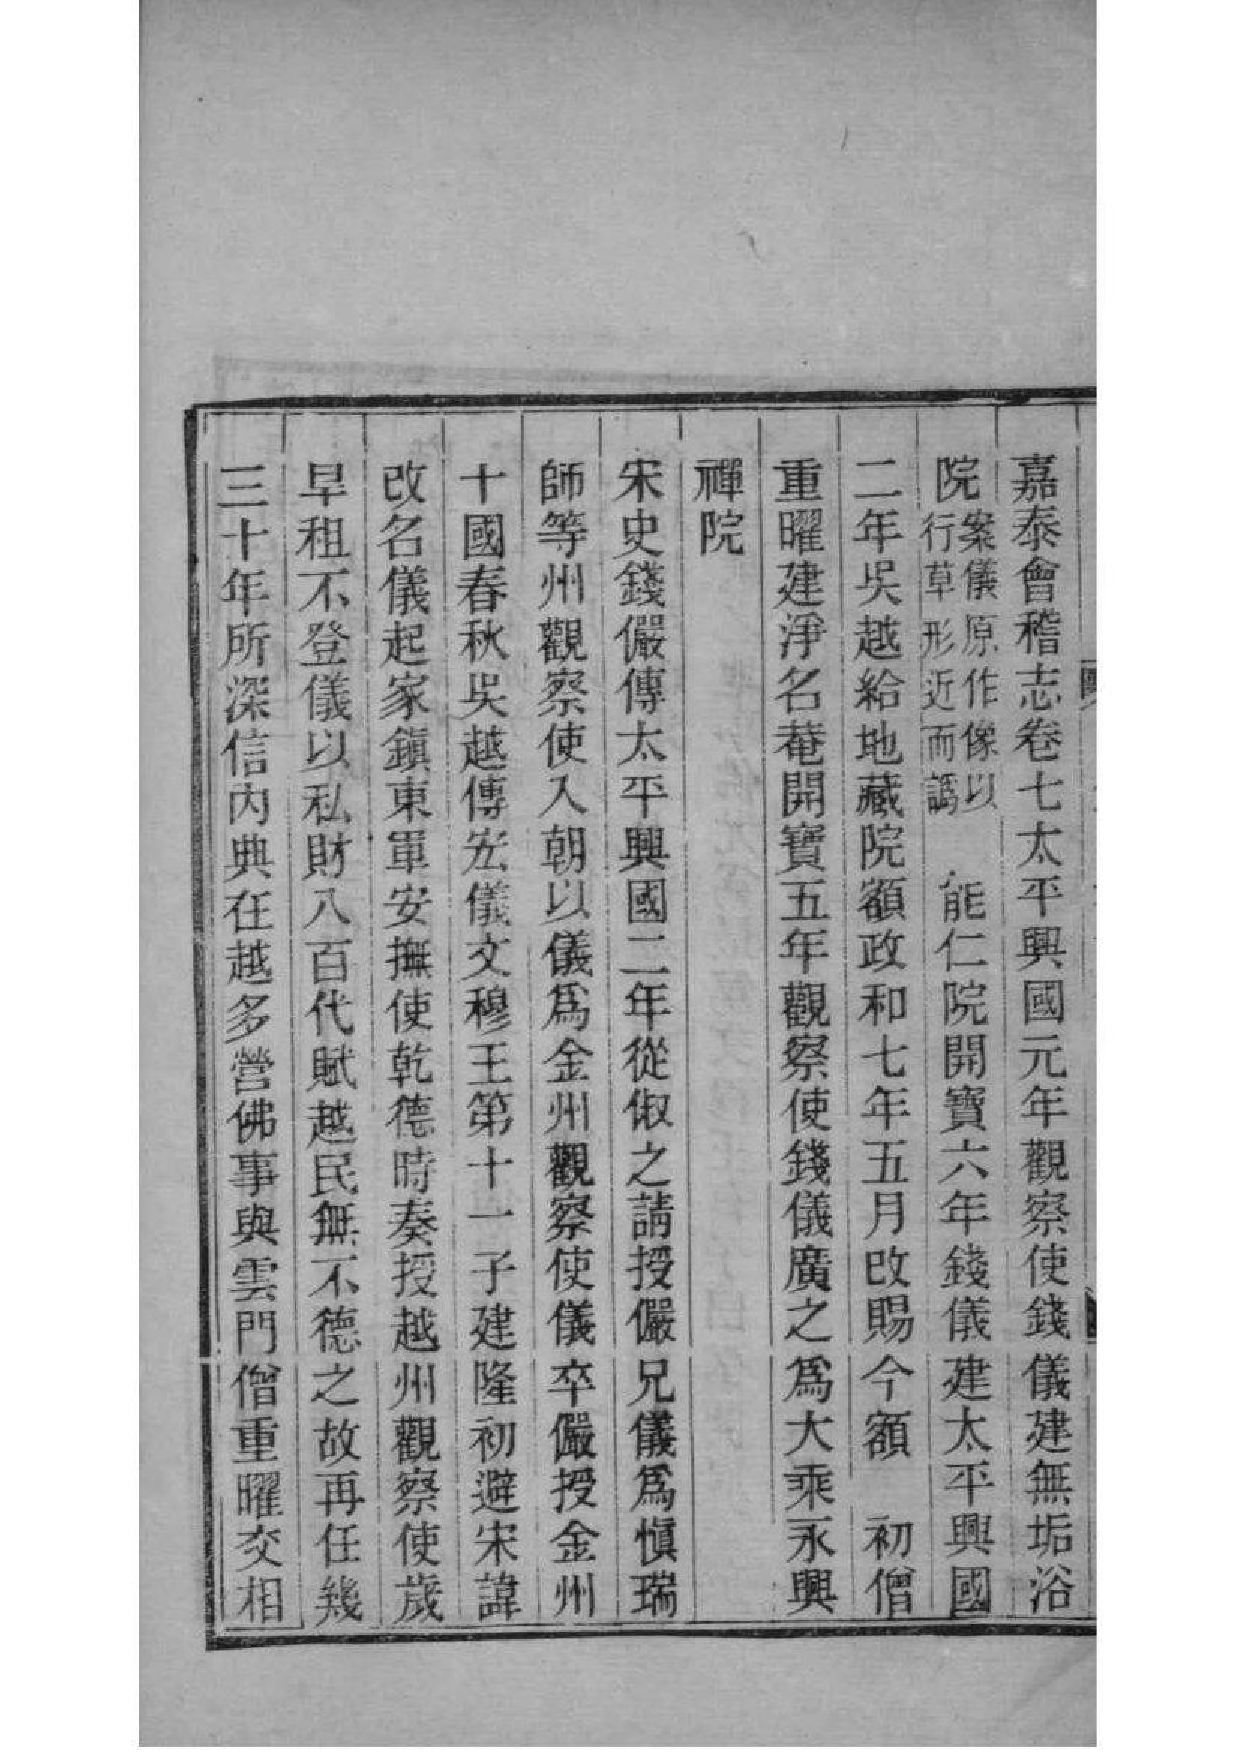 嘉泰會稽志卷七太平興國元年觀察使錢儀建無垢浴
院案儀原作像以行草形近而譌　能仁院開寶六年錢儀建太平興國
二年吳越給地藏院額政和七年五月改賜今額　初僧
重曜建淨名菴開寶五年觀察使錢儀廣之爲大乘永興
禪院
宋史錢儼傳太平興國二年從俶之請授儼兄儀爲愼瑞
師等州觀察使入朝以儀爲金州觀察使儀卒儼授金州
十國春秋吳越傳宏儀文穆王第十一子建隆初避宋諱
改名儀起家鎭東軍安撫使乾德時奏授越州觀察使歲
旱租不登儀以私財八百代賦越民無不德之故再任幾
三十年所深信內典在越多營佛事與雲門僧重曜交相